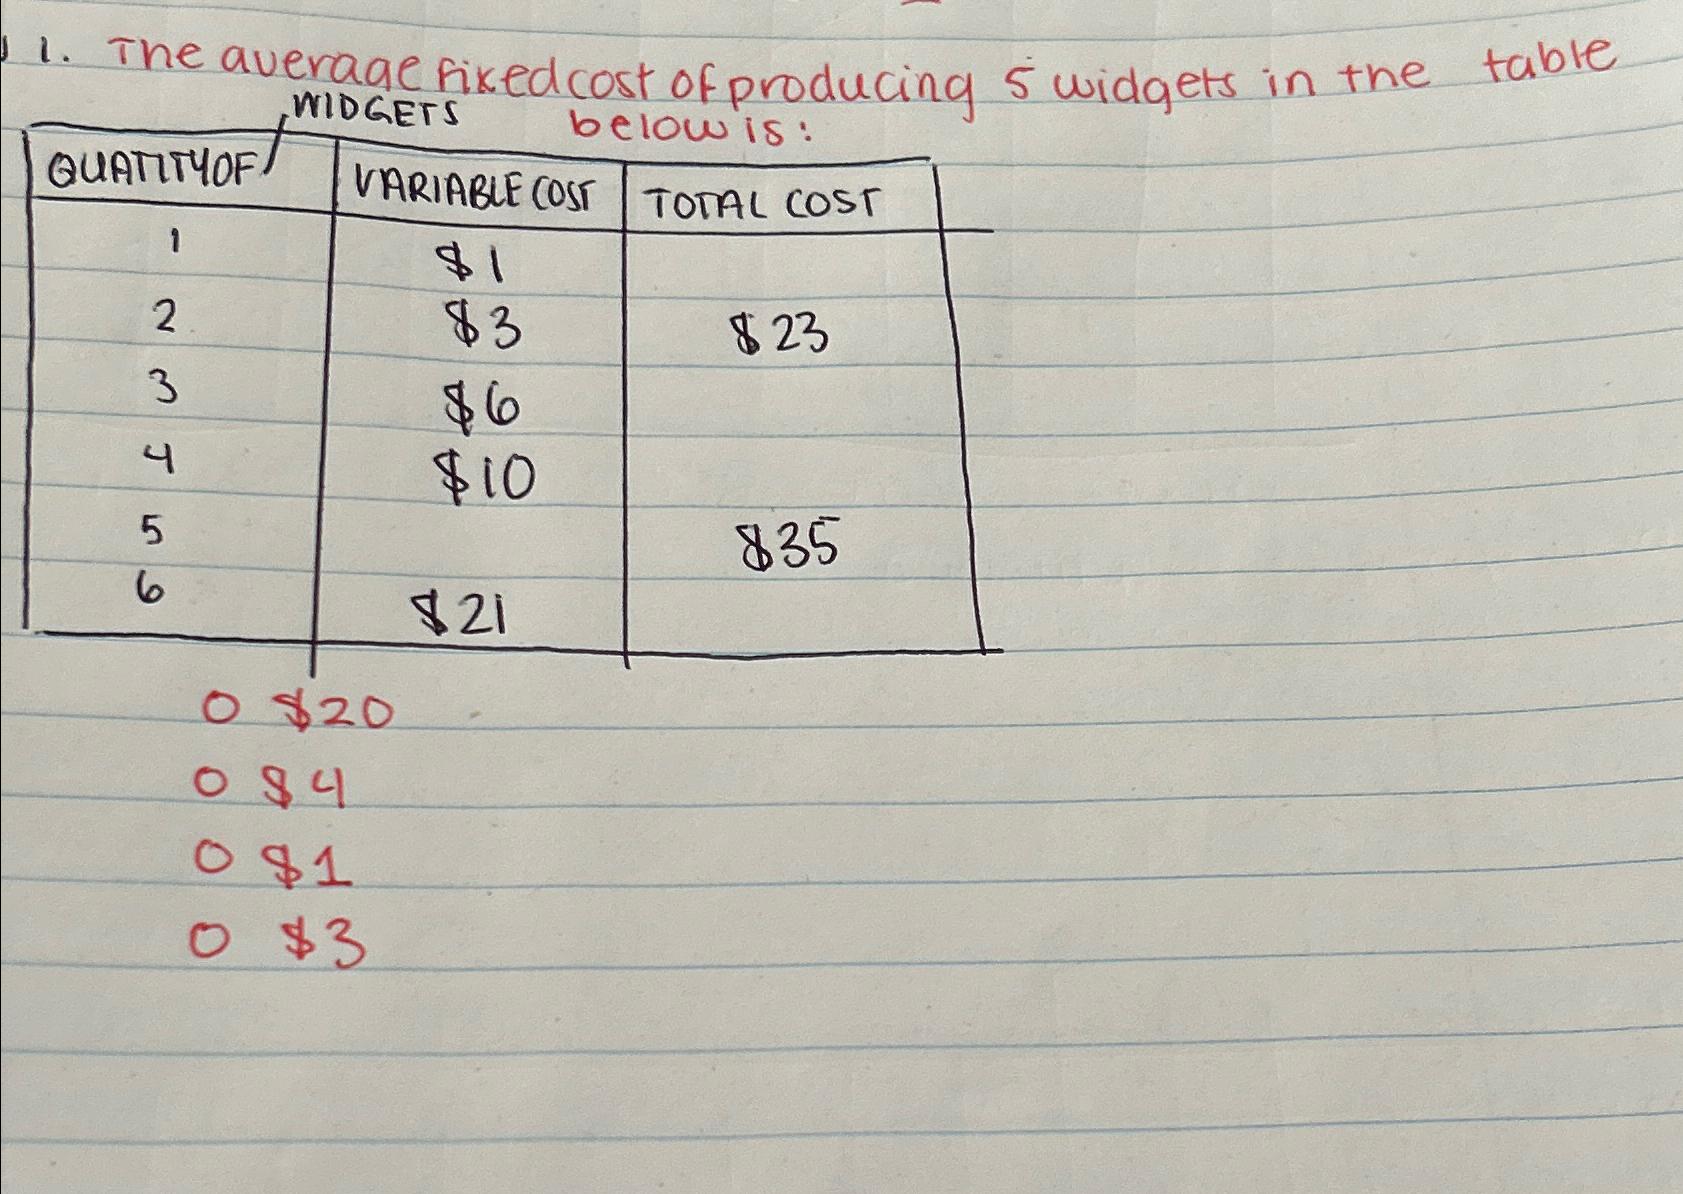 1. The average fixed cost of producing 5 widgets in the table
below is:
WIDGETS
QUATITY OF VARIABLE COST TOTAL COST
1 $1
2 $3 $23
3 $6
4 $10
5 $35
6 $21
O $20
O $4
O $1
O $3